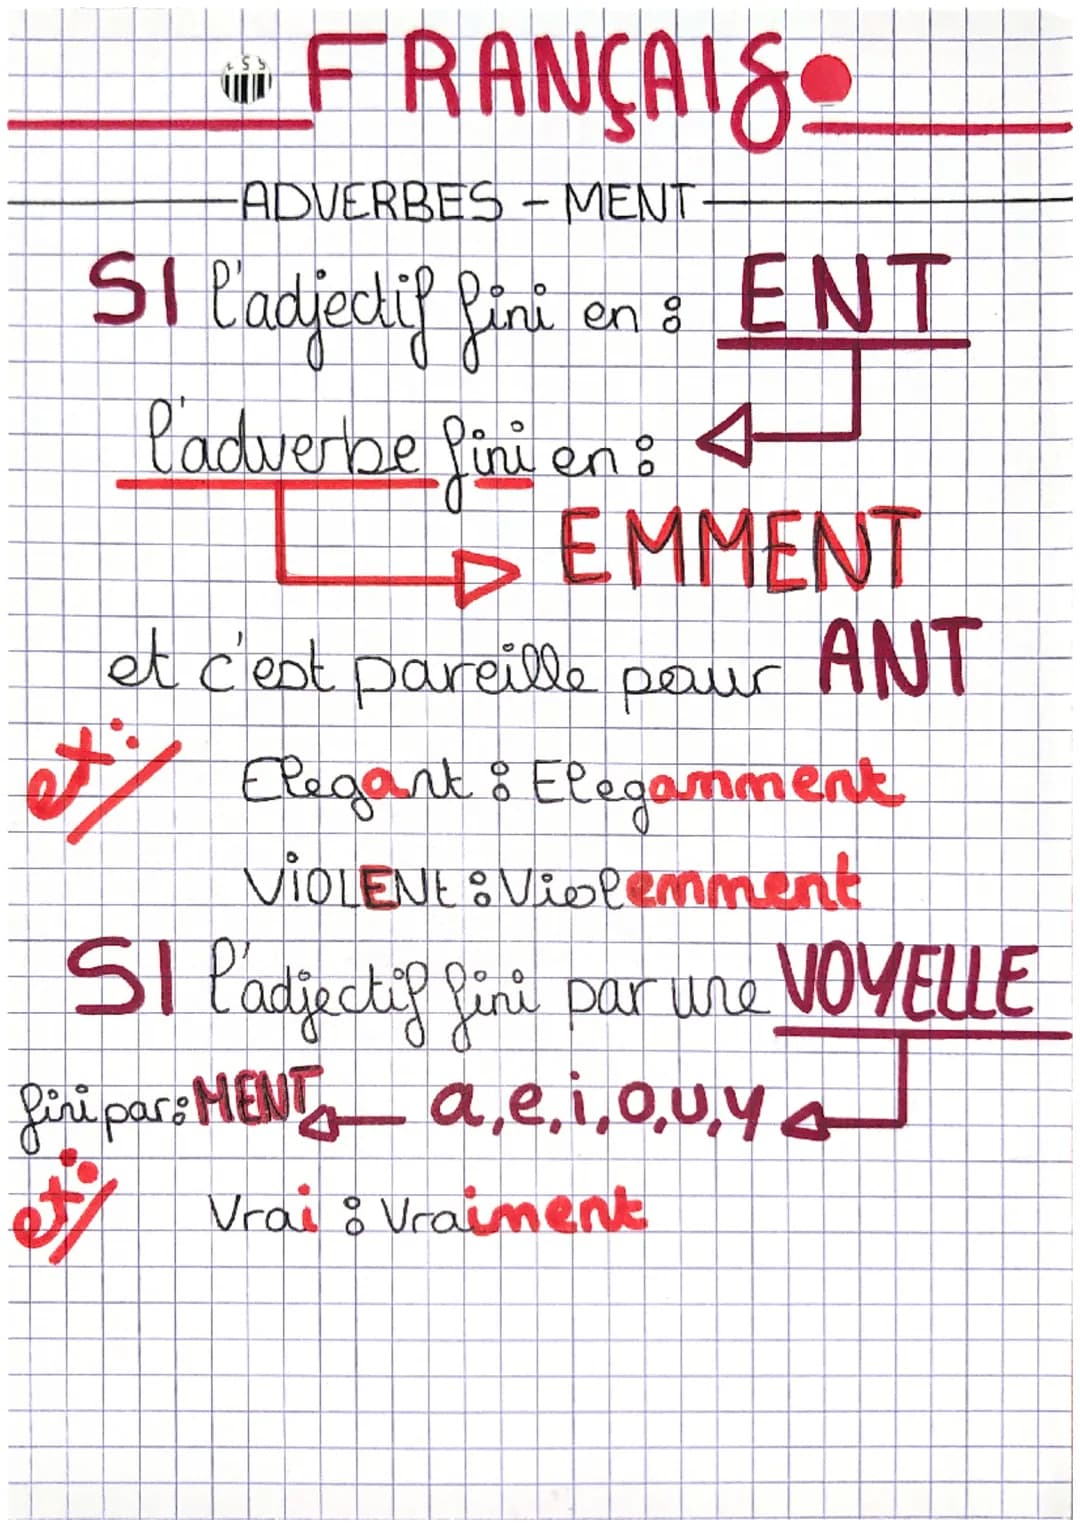 FRANÇAIS
ADVERBES - MENT
SI l'adjectif fini en : ENT
l'adverbe fini en :
EMMENT
et c'est pareille pour ANT
ex:
Elegant : Elegamment
ViOLENt : Violemment
SI l'adjectif fini par une VOYELLE
fini par : MENT a, e, i, o, u, y
ex:
Vrai : Vraiment